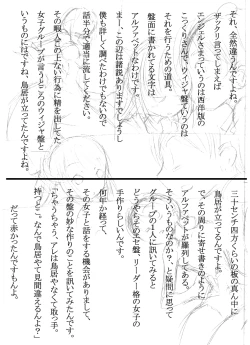 それ、全然違うんですよね。
ザックリ言ってしまえば
エンジェルさまっていうのは西洋版の
こっくりさんで、ウィジャ盤ていうのは
それを行うための道具。
盤面に書かれてる文字は
アルファベットなわけです。
まー、この辺は諸説ありますでしょうし
僕も詳しく調べたわけでもないので
話半分で適当に流してください。
その暇人この上ない行為に精を出してた
女子グループが言うところのウィジャ盤と
いうものにはですね、鳥居が立ってたんですよね。
三十センチ四方くらいの板の真ん中に
鳥居が立ってるんですよ。
で、その周りに寄せ書きのように
アルファベットが羅列してある。
そういうものなのか？、と疑問に思って
グループの1人に訊いてみると
どうやらそのエセ盤、リーダー格の女子の
手作りらしいんです。
何年か経って、
その女子と話をする機会がありまして
その盤の妙な作りのことを訊いてみたんです。
「ちゃうちゃう、アレは鳥居やなくて取っ手。
持つとこ。なんで鳥居やて見間違えるんよ？」
だって赤かったんですもんよ。